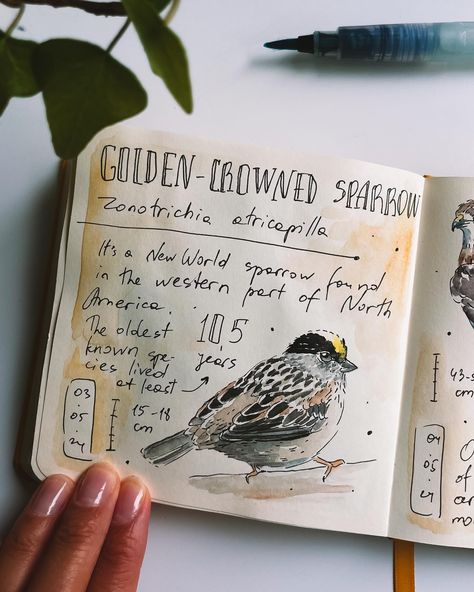 GOLDEN-CROWNED SPARROW
Zonotrichia atricapilla
It's a New World sparrow found
in the western part of North
America.
The oldest
known spe-
cies lived
at least
10,5
years
03
05
24
15-18
cm
43-
cm
04
05
24
of